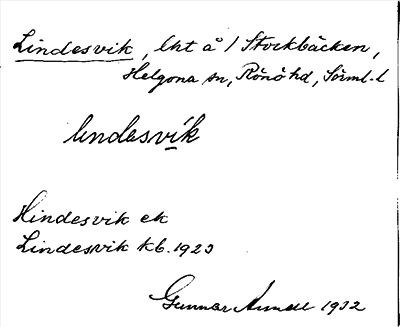 Lindesvik, lht å / Stockbäcken,
Helgona sn, Rönö hd, Sörml. l
lindesvik
Hindesvik ek
Lindesvik kb. 1923
Gunnar 1932